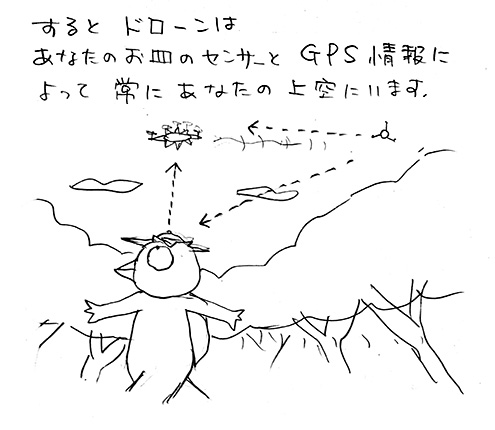 すると ドローンは
あなたのお皿のセンサーと GPS情報に
よって 常に あなたの 上空にいます。